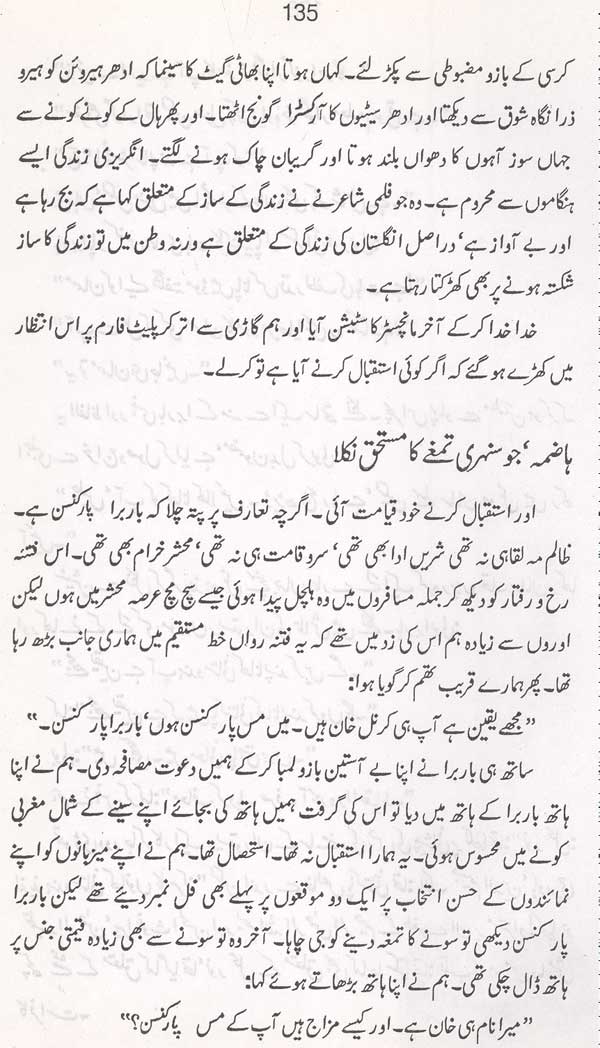 135
کرسی کے بازو مضبوطی سے پکڑ لئے۔ کہاں ہوتا اپنا بھاٹی گیٹ کا سینما کہ ادھر ہیروئن کو ہیرو
ذرا نگاہ شوق سے دیکھتا اور ادھر سیٹیوں کا آرکسٹرا گونج اٹھتا۔ اور پھر ہال کے کونے کونے سے
جہاں سوز آہوں کا دھواں بلند ہوتا اور گریبان چاک ہونے لگتے۔ انگریزی زندگی ایسے
ہنگاموں سے محروم ہے۔ وہ جو فلمی شاعر نے زندگی کے ساز کے متعلق کہا ہے کہ بج رہا ہے
اور بے آواز ہے‘ دراصل انگلستان کی زندگی کے متعلق ہے ورنہ وطن میں تو زندگی کا ساز
شکستہ ہونے پر بھی کھڑکتا رہتا ہے۔
خدا خدا کر کے آخر مانچسٹر کا سٹیشن آیا اور ہم گاڑی سے اتر کر پلیٹ فارم پر اس انتظار
میں کھڑے ہو گئے کہ اگر کوئی استقبال کرنے آیا ہے تو کر لے۔
ہاضمہ‘ جو سنہری تمغے کا مستحق نکلا
اور استقبال کرنے خود قیامت آئی۔ اگرچہ تعارف پر پتہ چلا کہ باربرا پارکنسن ہے۔
ظالم مہ لقا ہی نہ تھی شریں ادا بھی تھی‘ سرو قامت ہی نہ تھی‘ محشر خرام بھی تھی۔ اس فتنہ
رخ و رفتار کو دیکھ کر جملہ مسافروں میں وہ ہلچل پیدا ہوئی جیسے سچ مچ عرصہ محشر میں ہوں لیکن
اوروں سے زیادہ ہم اس کی زد میں تھے کہ یہ فتنہ رواں خط مستقیم میں ہماری جانب بڑھ رہا
تھا۔ پھر ہمارے قریب تھم کر گویا ہوا:
”مجھے یقین ہے آپ ہی کرنل خان ہیں۔ میں مس پارکنسن ہوں‘ باربرا پارکنسن۔“
ساتھ ہی باربرا نے اپنا بے آستین بازو لمبا کر کے ہمیں دعوت مصافحہ دی۔ ہم نے اپنا
ہاتھ باربرا کے ہاتھ میں دیا تو اس کی گرفت ہمیں ہاتھ کی بجائے اپنے سینے کے شمال مغربی
کونے میں محسوس ہوئی۔ یہ ہمارا استقبال نہ تھا۔ استحصال تھا۔ ہم نے اپنے میزبانوں کو اپنے
نمائندوں کے حسن انتخاب پر ایک دو موقعوں پر پہلے بھی فل نمبر دیئے تھے لیکن باربرا
پارکنسن دیکھی تو سونے کا تمغہ دینے کو جی چاہا۔ آخر وہ تو سونے سے بھی زیادہ قیمتی جنس پر
ہاتھ ڈال چکی تھی۔ ہم نے اپنا ہاتھ بڑھاتے ہوئے کہا:
”میرا نام ہی خان ہے۔ اور کیسے مزاج ہیں آپ کے مس پارکنسن؟“